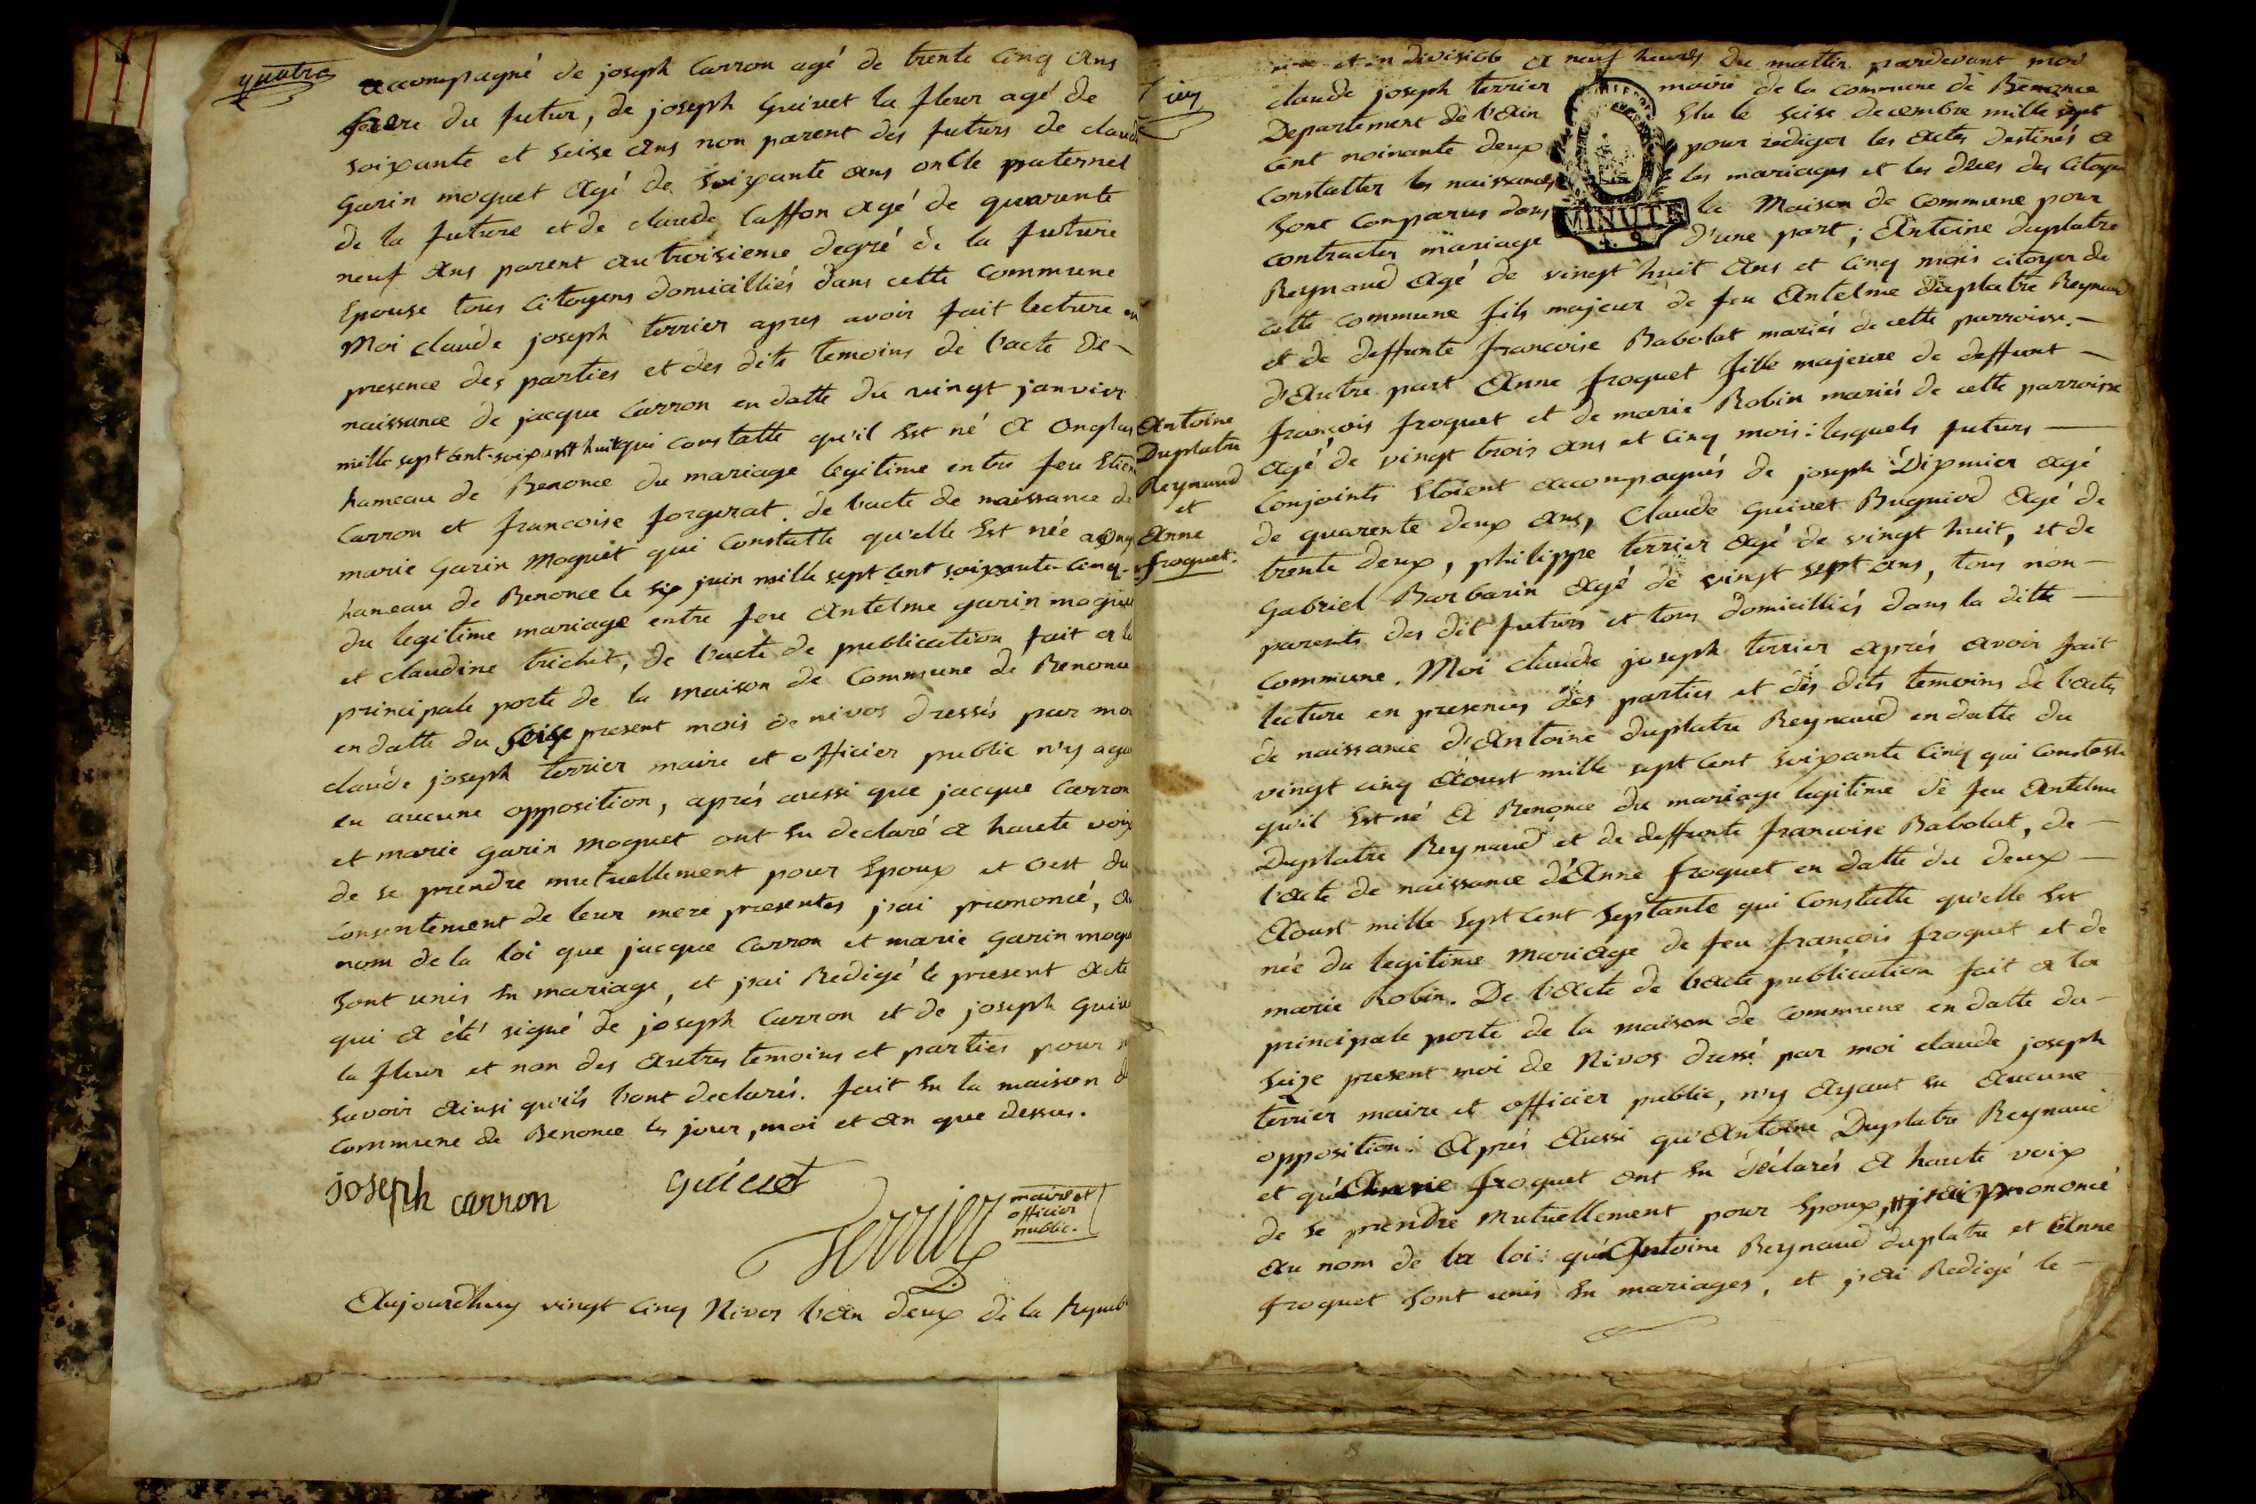 quatre
accompagné de joseph Carron agé de trente cinq ans
frere du futur, de joseph Guivet la fleur agé de
soixante et seise ans non parent des futurs de claude
Garin moquet agé de soixante ans oncle paternel
de la future et de claude laffon agé de quarante
neuf ans parent au troisieme degré de la future
Epouse tous Citoyens domicilliés dans cette commune
Moi claude joseph terrier apres avoir fait lecture en
presence des parties et des dits temoins de l'acte de
naissance de jacque Carron en datte du vingt janvier
mille sept cent soixant huit qui constatte qu'il Est né a Onglas
hameau de Benonce du mariage legitime entre feu Etien
Carron et francoise forgerat. de l'acte de naissance de
marie Garin Moquet qui Constatte qu'elle Est née a
hameau de Benonce le six juin mille sept cent soixante-cinq
du legitime mariage entre feu Antelme garin moquet
et claudine trichet, de l'acte de publication fait a la
principale porte de la maison de Commune de Benonce
en datte du seise present mois de nivos dressés par moi
claude joseph terrier maire et officier public n'y aya
eu aucune opposition, aprés aussi que jacque Carron
et marie garin moquet ont eu declaré a haute voix
de se prendre mutuellement pour Epoux et c'est du
Consentement de leur mere presentes j'ai prononcé, au
nom de la loi que jacque Carron et marie garin moqu
sont unis En mariage, et j'ai Redigé le present acte
qui a été signé de joseph Carron et de joseph guiv
la fleur et non des autres temoins et parties pour n
savoir ainsi qu'ils l'ont declarés. fait En la maison d
commune de Benonce les jour, moi et an que dessus.
joseph carron
guivet
Terrier maire et
officier
public.
Aujourdhuy vingt cinq Nivos l'an deux de la Republ
cinq
Antoine
Duplatre
Reynaud
et
Anne
froquet.
une et indivisible a neuf heures du mattin pardevant moi
claude joseph terrier maire de la commune de Benonce
Departement de l'ain Elu le seise decembre mille sept
cent noinante deux pour rediger les actes destinés a
Constatter les naissances les mariages et les deces des Citoyen
MINUTE
sont comparus dans la Maison de Commune pour
contracter mariage d'une part, Antoine duplatre
Reynaud agé de vingt huit ans et cinq mois citoyen de
cette commune fils majeur de feu Antelme duplatre Reynaud
et de deffunte francoise Babolat mariés de cette parroisse.
d'autre part Anne froquet fille majeure de deffunt
françois froquet et de marie Robin mariés de cette parroisse
agé de vingt trois ans et cinq mois : lesquels futurs
Conjoints Etoient accompagnés de joseph Dipmier agé
de quarente deux ans, Claude guivet Bugniod agé de
trente deux, philippe terrier agé de vingt huit, et de
Gabriel Barbarin agé de vingt sept ans, tous non
parents des dit futurs et tous domicilliés dans la ditte
Commune. Moi claude joseph terrier aprés avoir fait
lecture en presences des parties et des dits temoins de l'acte
de naissance d'Antoine duplatre Reynaud en datte du
vingt cinq aoust mille sept cent soixante cinq qui constatte
qu'il Est né a Benonce du mariage legitime de feu Antelme
Duplatre Reynaud et de deffunte francoise Babolat, de
l'acte de naissance d'Anne froquet en datte du deux
aoust mille sept cent septante qui Constatte qu'elle Est
née du legitime mariage de feu françois froquet et de
marie Robin. De l'acte de l'acte publication fait a la
principale porte de la maison de commune en datte du
seize present moi de Nivos dressé par moi claude joseph
terrier maire et officier public, n'y ayant eu aucune
opposition. Aprés aussi qu'Antoine Duplatre Reynaud
et qu'Anne froquet ont eu déclarés a haute voix
de se prendre mutuellement pour Epoux, j'ai prononcé
au nom de la loi : qu'Antoine Reynaud duplatre et Anne
froquet sont unis En mariages, et j'ai Redigé le